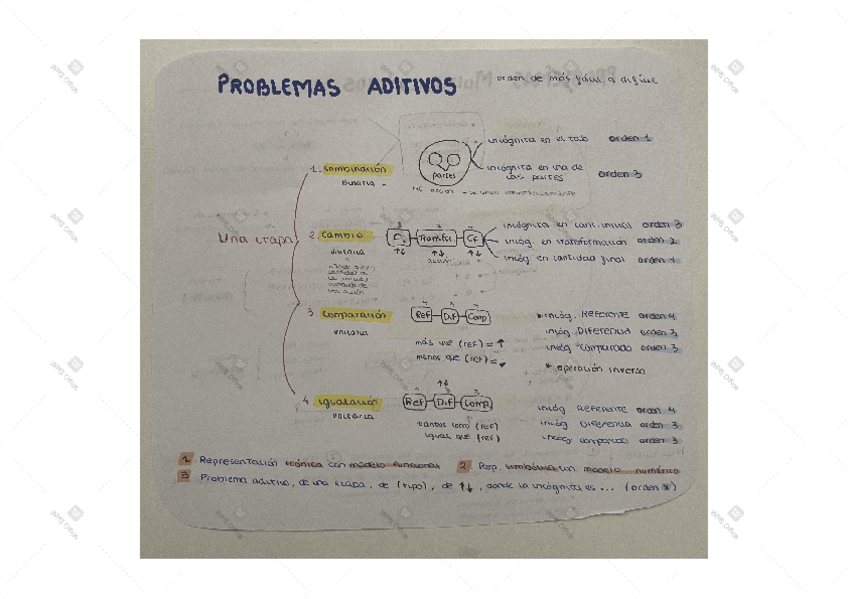 PROBLEMAS ADITIVOS
orden de más fácil a difícil
1. combinación
binaria
partes
incógnita en el todo orden 1
incógnita en una de las partes orden 3
NO acción
Una etapa
2. cambio
unitaria
CI Transfor CF
acción
incógnita en cant. inicial orden 3
incóg. en transformación orden 2
incóg. en cantidad final orden 1
3. comparación
unitaria
Ref Dif Comp
más que (ref) = ↑
menos que (ref) = ↓
* incóg. REFERENTE orden 4
incóg. DIFERENCIA orden 3
incóg. comparado orden 3
* operación inversa
4. igualación
unitaria
↑↓
Ref Dif Comp
tantos como (ref)
igual que (ref)
incóg. REFERENTE orden 4
incóg. DIFERENCIA orden 3
incóg. comparado orden 3
1 Representación icónica con modelo funcional 2 Rep. simbólica con modelo numérico
3 Problema aditivo, de una etapa, de (tipo), de ↑↓, donde la incógnita es ... (orden x)